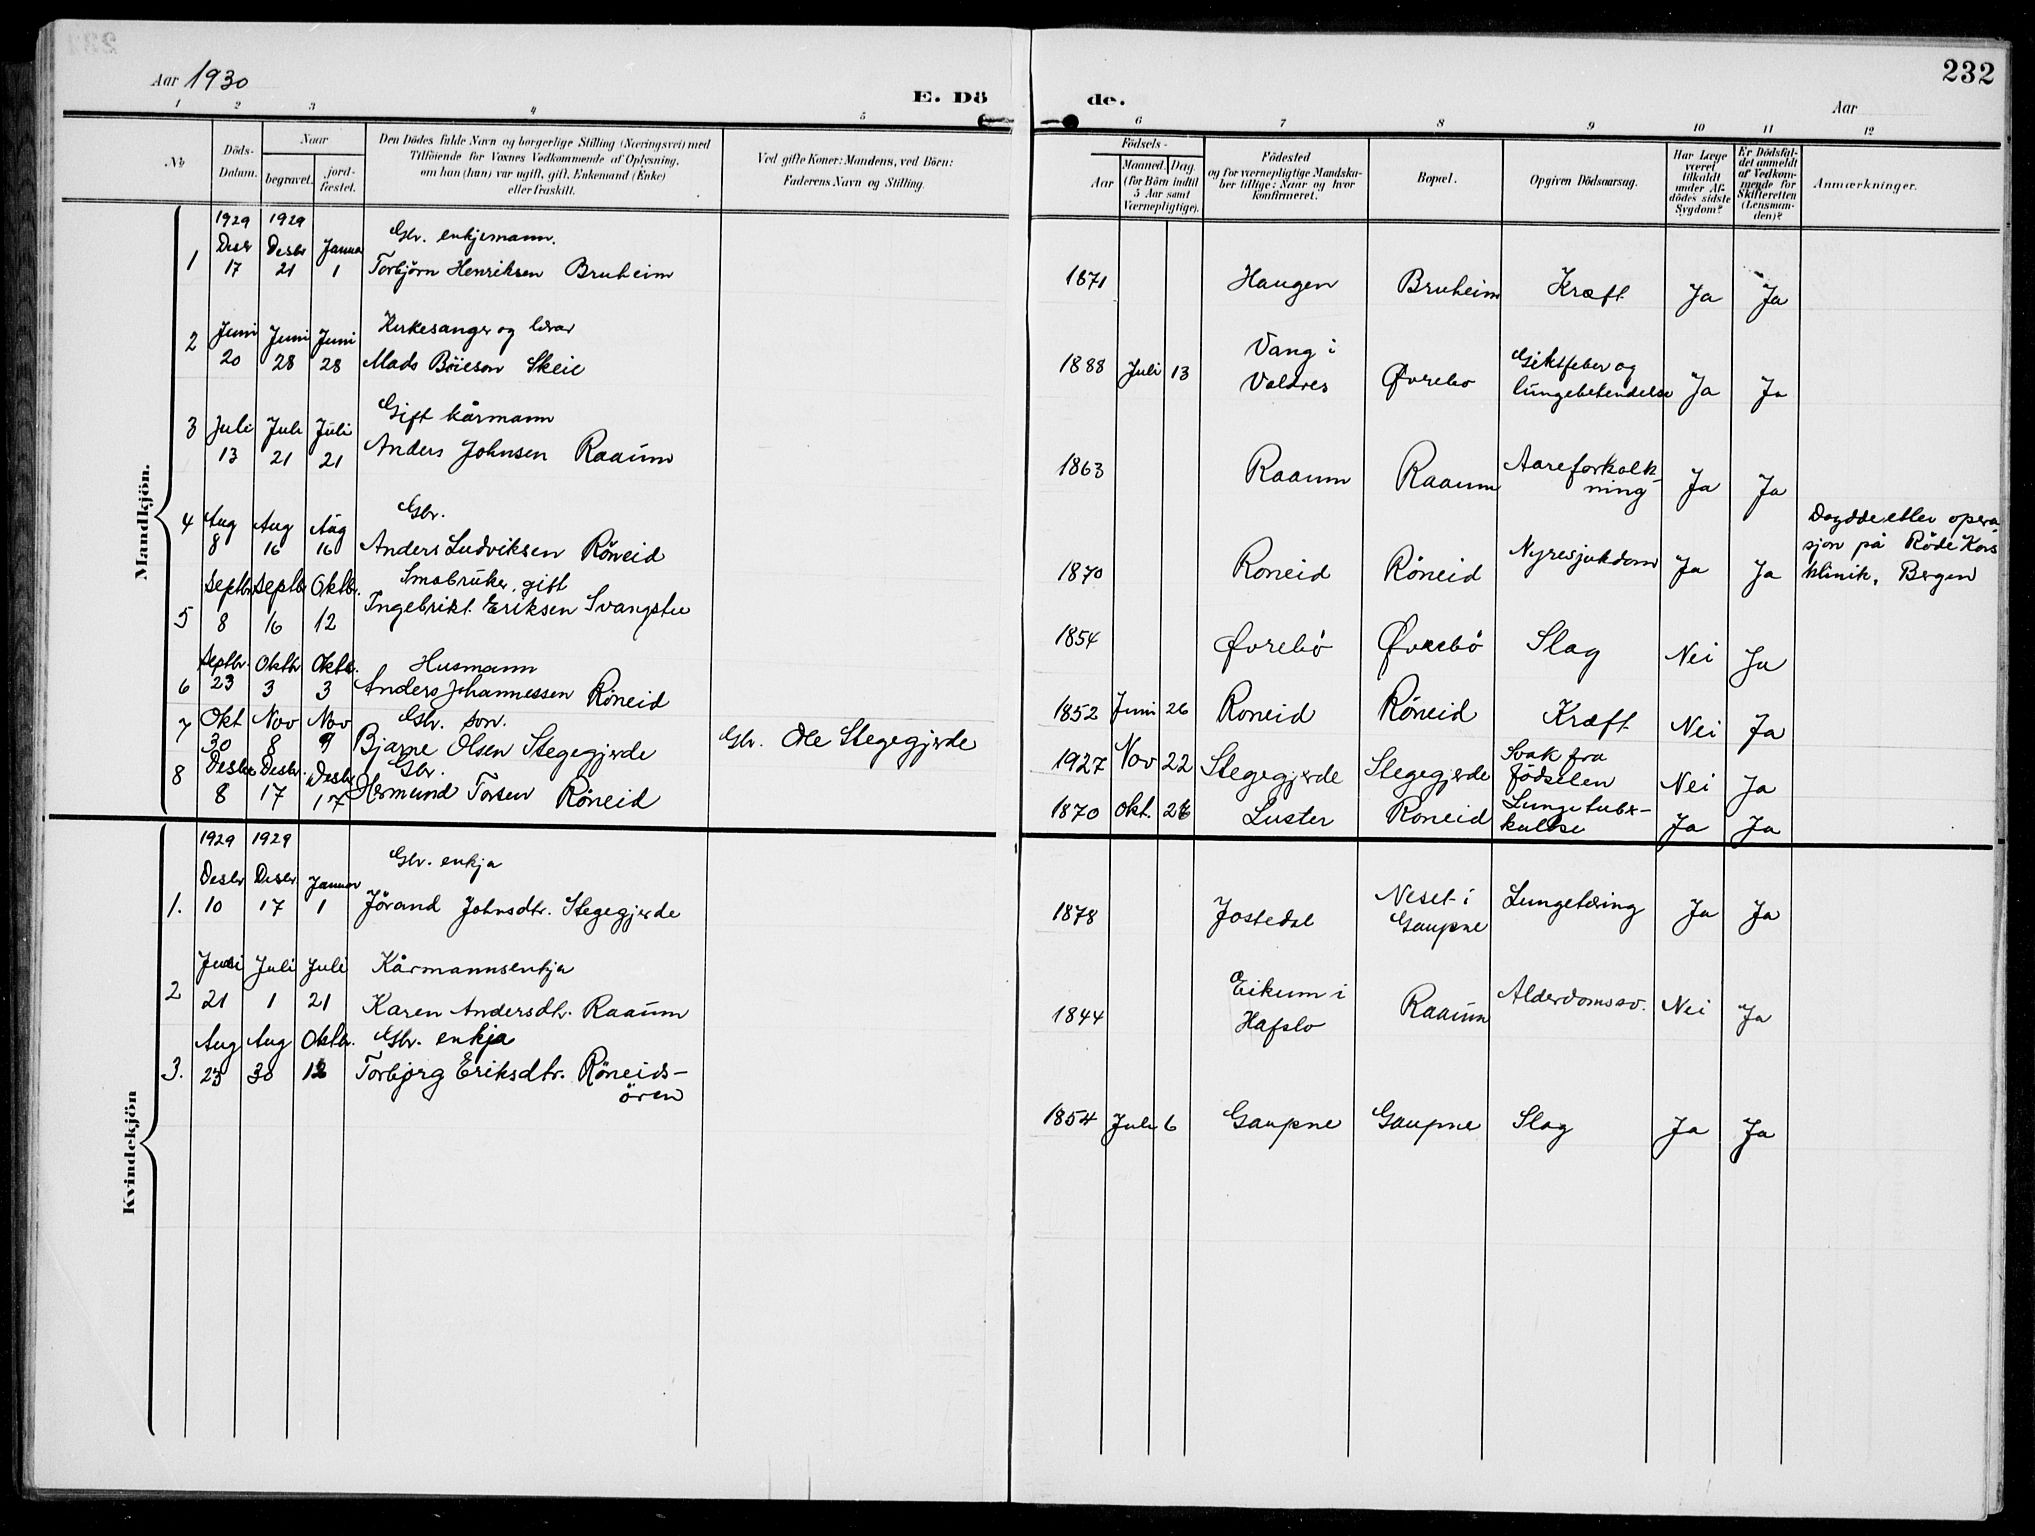 232
Aar 1930
E. Dö
de.
Aar
1 2 3 4 5 6 7 8 9 10 11 12
No
Döds-
Datum.
Naar
begravet.
jord-
fæstet.
Den Dödes fulde Navn og borgerlige Stilling (Næringsvei) med
Tilföiende for Voxnes Vedkommende af Oplysning,
om han (hun) var ugift, gift, Enkemand (Enke)
eller fraskilt.
Ved gifte Koner: Mandens, ved Börn:
Faderens Navn og Stilling.
Födsels-
Aar
Maaned. Dag.
(for Börn indtil
5 Aar samt
Værnepligtige).
Födested
og for værnepligtige Mandska-
ber tillige: Naar og hvor
konfirmeret.
Bopæl.
Opgiven Dödsaarsag.
Har Læge
været
tilkaldt
under Af-
dödes sidste
Sygdom?
Er Dödsfal-
det anmeldt
af Vedkom-
mende for
Skifteretten
(Lensman-
den)?
Anmærkninger.
Mandkjön.
1929 1929
Desbr Desbr Januar Gbr. enkjemann.
1 17 21 1 Torbjörn Henriksen Bruheim 1871 Haugen Bruheim Kræft Ja Ja
Juni Juni Juni Kirkesanger og lærar
2 20 28 28 Mads Böieson Skeie 1888 Juli 13 Vang i
Valdres Øvrebo Giktfeber og
lungebetendelse Ja Ja
Juli Juli Juli Gift kårmann
3 13 21 21 Anders Johnsen Raaum 1863 Raaum Raaum Aareforkalk-
ning Ja Ja
Aug Aug Aug Gbr.
4 8 16 16 Anders Ludviksen Röneid 1870 Roneid Röneid Nyresjukdom Ja Ja
Döydde etter opera-
sjon på Röde Kors
klinik, Bergen
Septbr Septbr Oktbr. Småbruker, gift
5 8 16 12 Ingebrikt Eriksen Svangstu 1854 Øvrebö Øvrebö Slag Nei Ja
Septbr. Oktbr Oktbr. Husmann
6 23 3 3 Anders Johannessen Röneid 1852 Juni 26 Roneid Röneid Kræft Nei Ja
Okt Nov Nov Gbr. son.
7 30 8 9 Bjarne Olsen Stegegjerde Gbr. Ole Stegegjerde 1927 Nov 22 Stegegjerde Stegegjerde Svak fra
födselen Nei Ja
Desbr Desbr. Desbr Gbr.
8 8 17 17 Hermund Torsen Röneid 1870 Okt. 26 Luster Roneid Lungetuber-
kulose Ja Ja
Kvindekjön
1929 1929
Desbr Desbr. Januar Gbr. enkja
1. 10 17 1 Jörand Johnsdtr. Stegegjerde 1878 Jostedal Neset i
Gaupne Lungetæring Ja Ja
Juni Juli Juli Kårmannsenkja
2 21 1 21 Karen Andersdtr. Raaum 1844 Eikum i
Hafslo Raaum Alderdomssv. Nei Ja
Aug Aug Oktbr. Gbr. enkja
3. 23 30 12 Torbjørg Eriksdtr. Röneids-
ören 1854 Juli 6 Gaupne Gaupne Slag Ja Ja